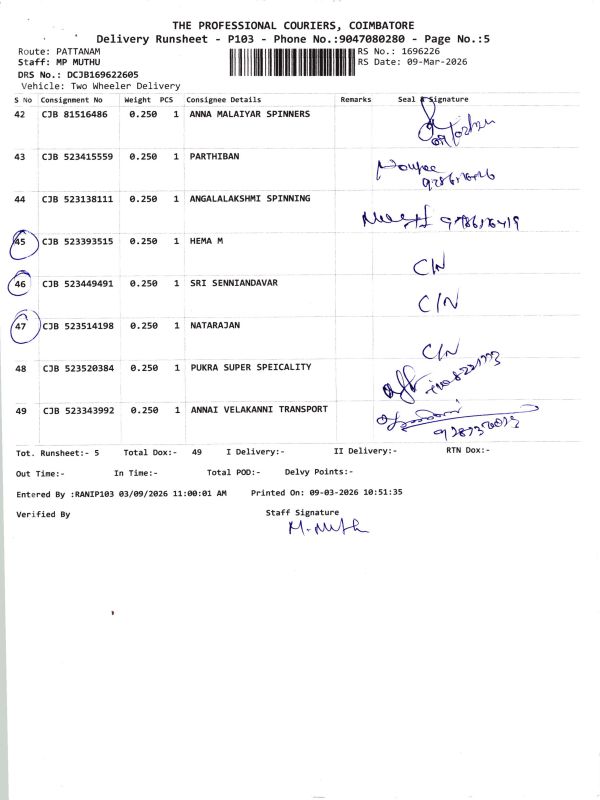 THE PROFESSIONAL COURIERS, COIMBATORE
Delivery Runsheet - P103 - Phone No.:9047080280 - Page No.:5
Route: PATTANAM
RS No.: 1696226
Staff: MP MUTHU
RS Date: 09-Mar-2026
DRS No.: DCJB169622605
Vehicle: Two Wheeler Delivery
S No Consignment No Weight PCS Consignee Details Remarks Seal & Signature
42 CJB 81516486 0.250 1 ANNA MALAIYAR SPINNERS
43 CJB 523415559 0.250 1 PARTHIBAN
44 CJB 523138111 0.250 1 ANGALALAKSHMI SPINNING
45 CJB 523393515 0.250 1 HEMA M C/N
46 CJB 523449491 0.250 1 SRI SENNIANDAVAR C/N
47 CJB 523514198 0.250 1 NATARAJAN C/N
48 CJB 523520384 0.250 1 PUKRA SUPER SPEICALITY
49 CJB 523343992 0.250 1 ANNAI VELAKANNI TRANSPORT
Tot. Runsheet:- 5 Total Dox:- 49 I Delivery:- II Delivery:- RTN Dox:-
Out Time:- In Time:- Total POD:- Delvy Points:-
Entered By :RANIP103 03/09/2026 11:00:01 AM Printed On: 09-03-2026 10:51:35
Verified By Staff Signature
M. Muth